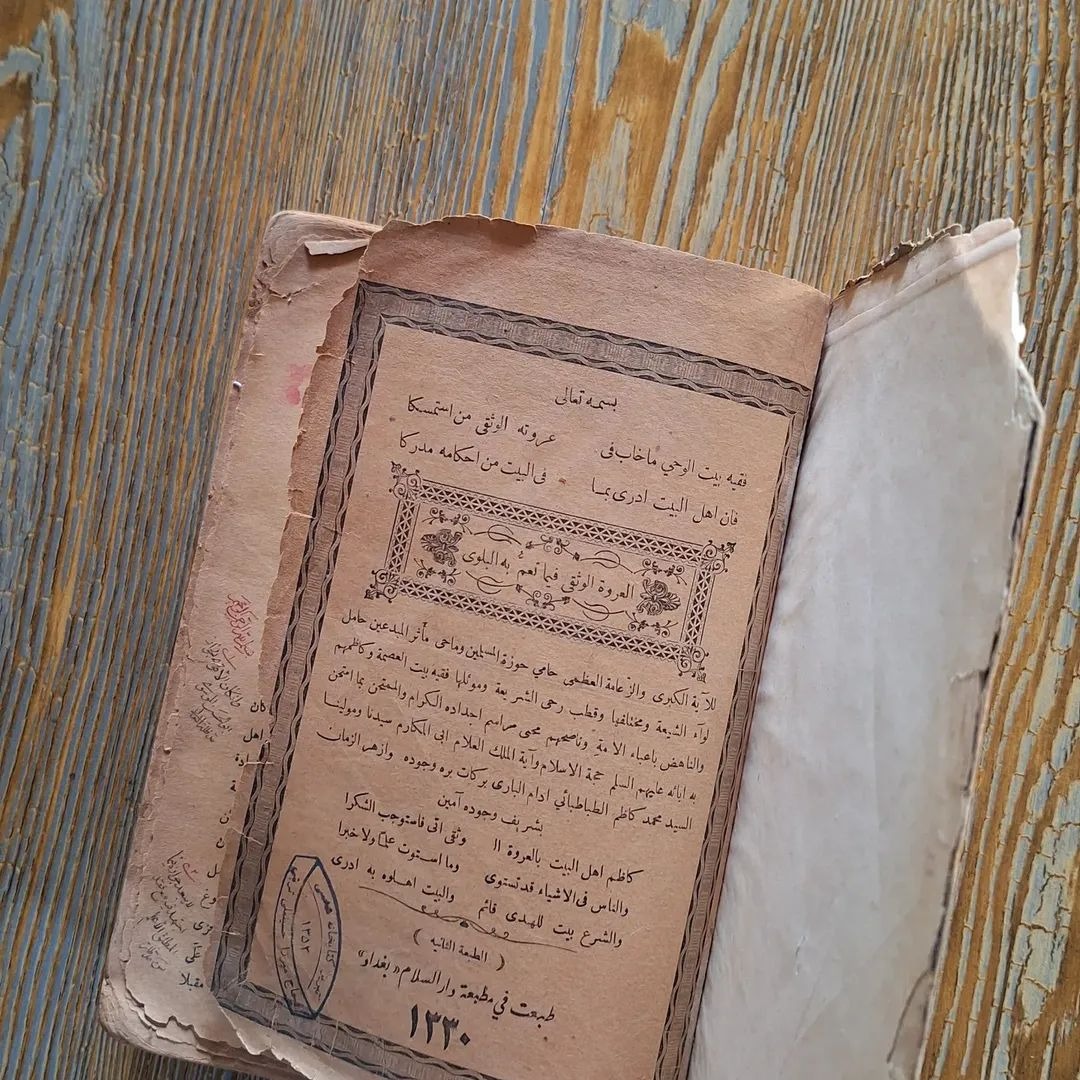 بسمه تعالى
فقيه بيت الوحي ماخاب فى عروته الوثقى من استمسكا
فان اهل البيت ادرى بما فى البيت من احكامه مدركا
العروة الوثقى فيما تعم به البلوى
للآية الكبرى والزعامة العظمى حامي حوزة المسلمين وماحى مآثر المبدعين حامل
لوآء الشيعة ومختلفها وقطب رحى الشريعة وموئلها فقيه بيت العصمة وكاظمهم
والناهض باعباء الامة وناصحهم محيى مراسم اجداده الكرام والممتحن بما امتحن
به ابائه عليهم السلم حجة الاسلام وآية الملك العلام ابى المكارم سيدنا ومولينا
السيد محمد كاظم الطباطبائي ادام البارى بركات بره وجوده وازهى الزمان
بشريف وجوده آمين
كاظم اهل البيت بالعروة ال وثقى اتى فاستوجب الشكرا
والناس فى الاشياء قد تستوى وما استوت علماً ولا خبرا
والشرع بيت للهدى قائم والبيت اهلوه به ادرى
( الطبعة الثانيه )
طبعت في مطبعة دار السلام « بغداد »
١٣٣٠
كان
اهل
مقبلا
كتابخانه
١٣٥٢